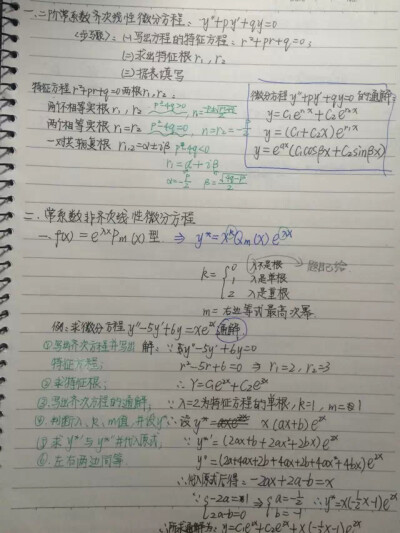 一.二阶常系数齐次线性微分方程: y"+py'+qy=0
<步骤>: (一)写出方程的特征方程: r²+pr+q=0;
(二)求出特征根r₁, r₂
(三)据表填写
特征方程r²+pr+q=0两根r₁, r₂:
两个不相等实根r₁, r₂
两个相等实根r₁=r₂
一对共轭复根r₁,₂=α±iβ
r₁=α+iβ
微分方程y"+py'+qy=0的通解:
y=C₁e^{r₁x}+C₂e^{r₂x}
y=(C₁+C₂x)e^{r₁x}
y=e^{αx}(C₁cosβx+C₂sinβx)
二.常系数非齐次线性微分方程
一. f(x)=e^{λx}Pm(x)型 ⇒ y*=x^kQm(x)e^{λx}
k= { 0 λ不是根
1 λ是单根
2 λ是重根
m=右边等式最高次幂
例:求微分方程y"-5y'+6y=xe^{2x}通解
①写出齐次方程并写出 解: ∵ y"-5y'+6y=0
特征方程; r²-5r+6=0 ⇒ r₁=2, r₂=3
②求特征根; ∴ Y=C₁e^{2x}+C₂e^{3x}
③写出齐次方程的通解; ∵ λ=2为特征方程的单根, k=1, m=1
④判断λ、k、m值,并设y* ∴设 y*= x(ax+b)e^{2x}
⑤求y*'与y*"并代入原式; ∵ y*'=(2ax+b+2ax²+2bx)e^{2x}
⑥左右两边同等 y*"=(2a+4ax+2b+4ax+2b+4ax²+4bx)e^{2x}
∴代入原式后得: -2ax+2a-b=x
∴ { -2a=1 2a-b=0 ⇒ { a=-1/2 b=-1 ∴ y*=x(-1/2x-1)e^{2x}
∴所求通解为: y=C₁e^{2x}+C₂e^{3x}+x(-1/2x-1)e^{2x}